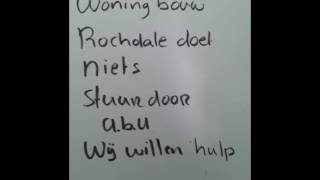 Woning bouw
Rochdale doet
niets
Stuur door
a.b.u
Wij willen hulp